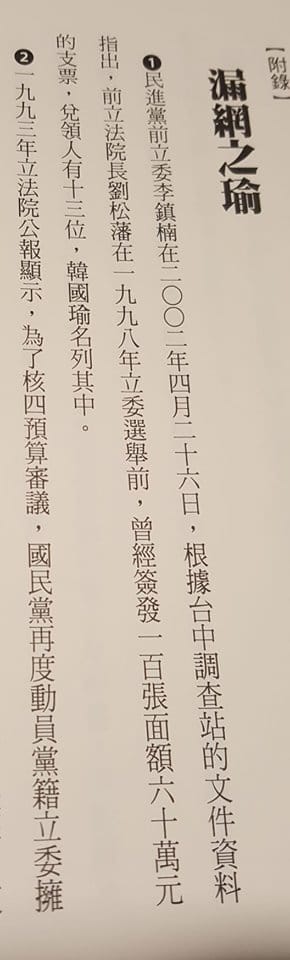 【附錄】
漏網之瑜
❶民進黨前立委李鎮楠在二〇〇二年四月二十六日，根據台中調查站的文件資料
指出，前立法院長劉松藩在一九九八年立委選舉前，曾經簽發一百張面額六十萬元
的支票，兌領人有十三位，韓國瑜名列其中。
❷一九九三年立法院公報顯示，為了核四預算審議，國民黨再度動員黨籍立委擁